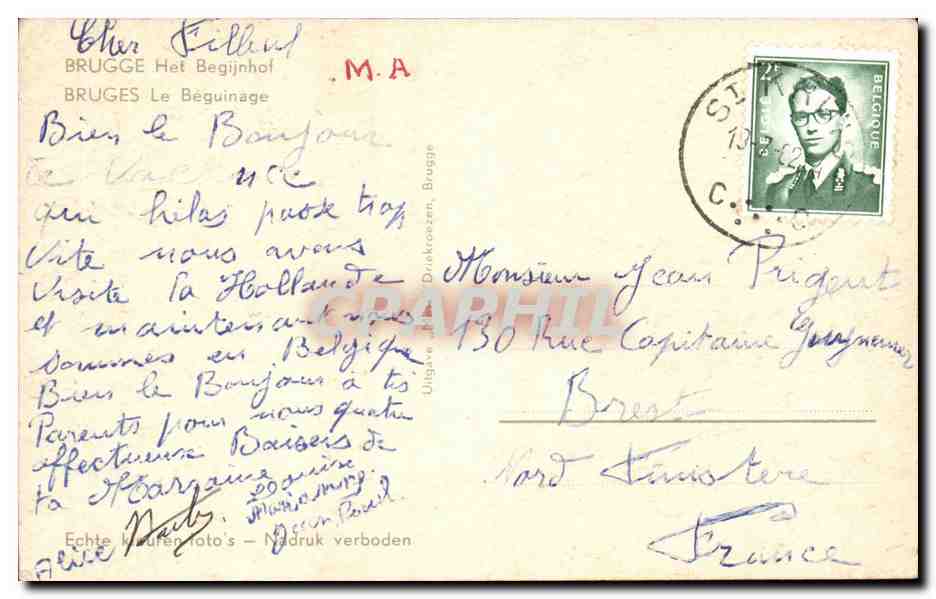 Cher Filleul
BRUGGE Het Begijnhof
BRUGES Le Béguinage
M.A
Bien le Bonjour
de vac nce
qui hélas passe trop
vite nous avons
visité la Hollande
et maintenant nous
sommes en Belgique
Bien le Bonjour à tes
Parents pour nous quatre
affectueux Baisers de
ta Marraine
Jean Paul.
Alice
Echte kleurenfoto's — Nadruk verboden
Uitgave Driekroezen, Brugge
2F
BELGIE BELGIQUE
C C
Monsieur Jean Prigent
130 Rue Capitaine Guynemer
Brest
Nord Finistere
France
CPAPHIL